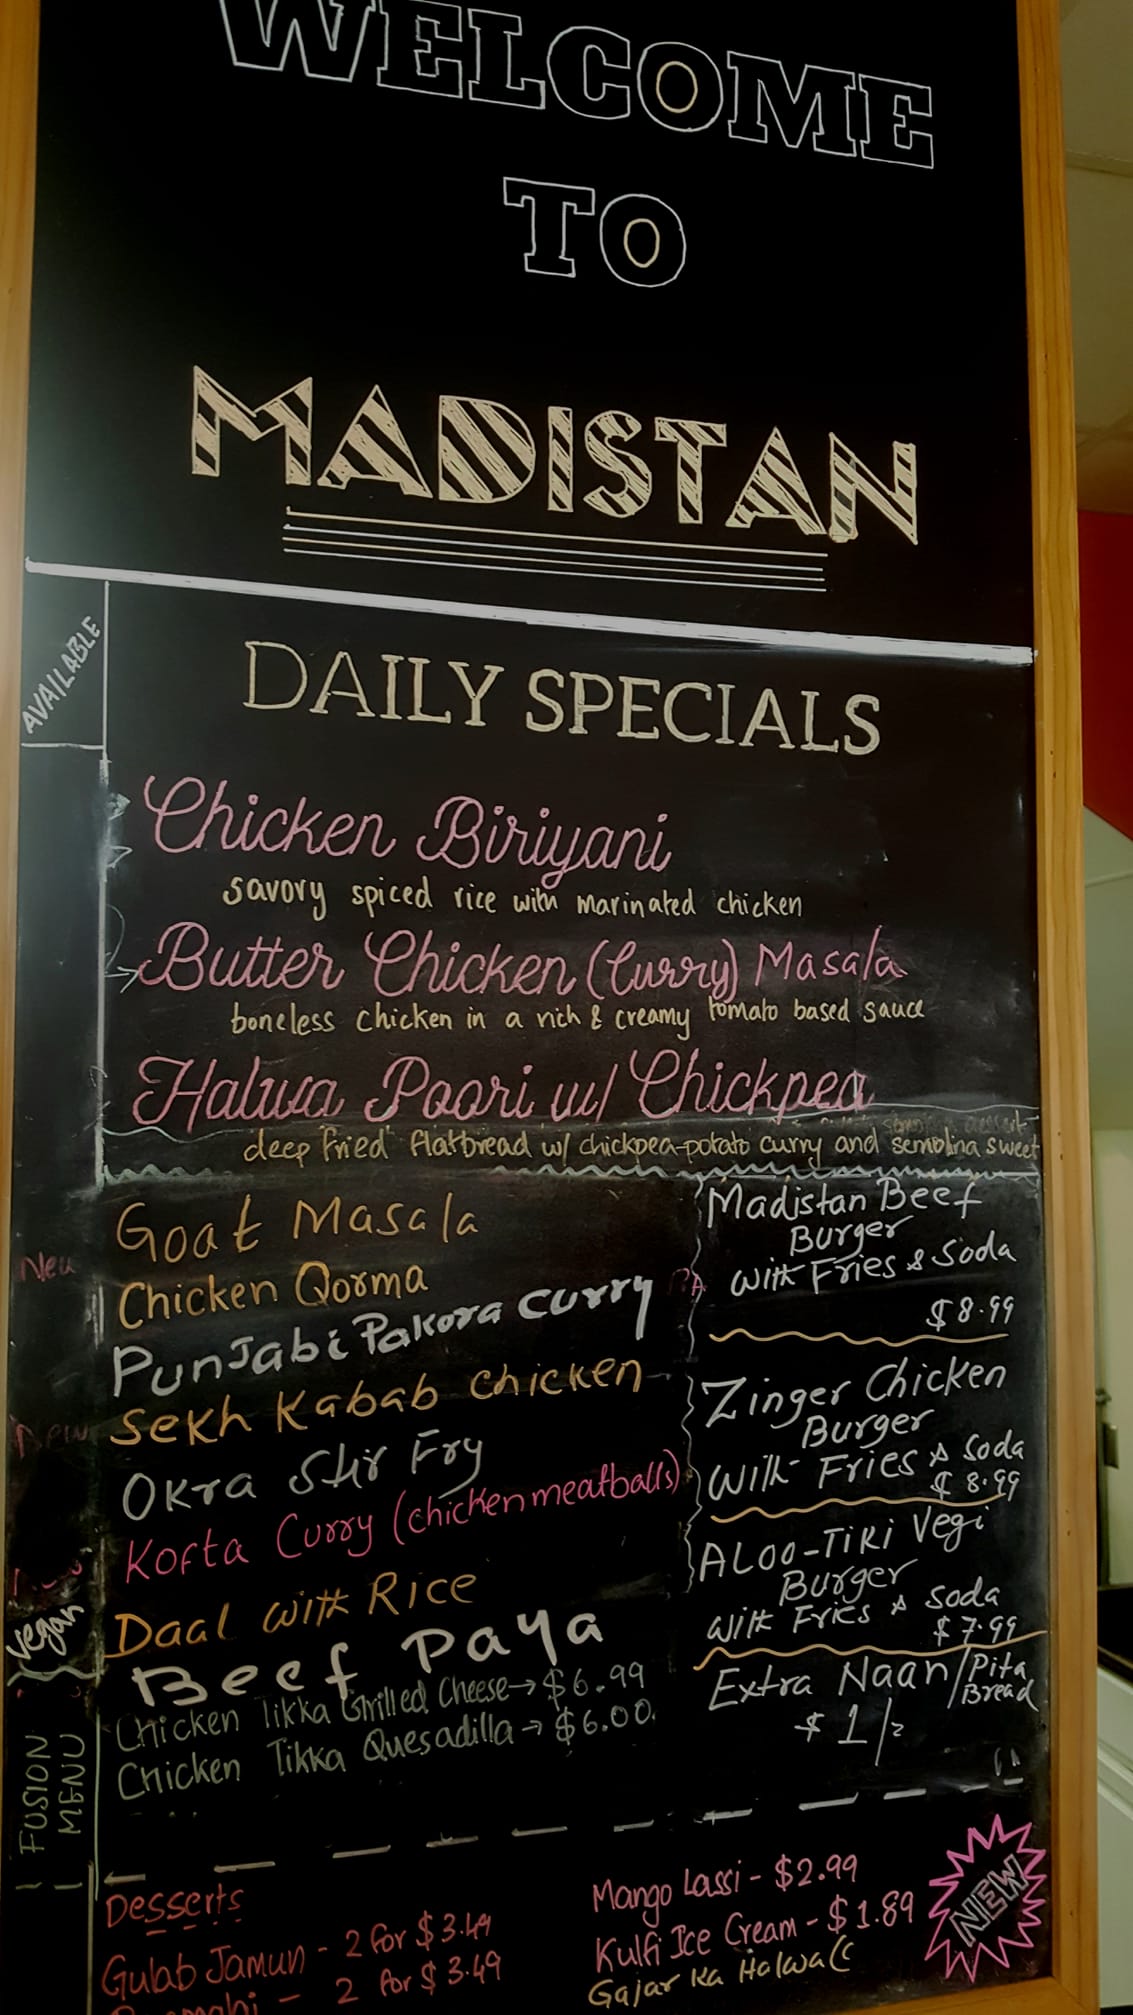 WELCOME
TO
MADISTAN
AVAILABLE
DAILY SPECIALS
Chicken Biriyani
savory spiced rice with marinated chicken
Butter Chicken (Curry) Masala
boneless chicken in a rich & creamy tomato based sauce
Halwa Poori w/ Chickpea
deep fried flatbread w/ chickpea-potato curry and semolina sweet
dessert
Goat Masala
New
Chicken Qorma
Punjabi Pakora Curry
Sekh Kabab chicken
New
Okra Stir Fry
Kofta Curry (chicken meatballs)
Daal with Rice
Vegan
Beef Paya
Chicken Tikka Grilled Cheese→ $6.99
Chicken Tikka Quesadilla → $6.00
FUSION
MENU
Madistan Beef
Burger
with Fries & Soda
$8.99
Zinger Chicken
Burger
with Fries & Soda
$8.99
ALOO-TiKi Vegi
Burger
with Fries & Soda
$7.99
Extra Naan/Pita
Bread
$1/=
Desserts
Gulab Jamun - 2 for $3.49
2 for $3.49
Mango Lassi - $2.99
Kulfi Ice Cream - $1.89
Gajar Ka Halwa
NEW